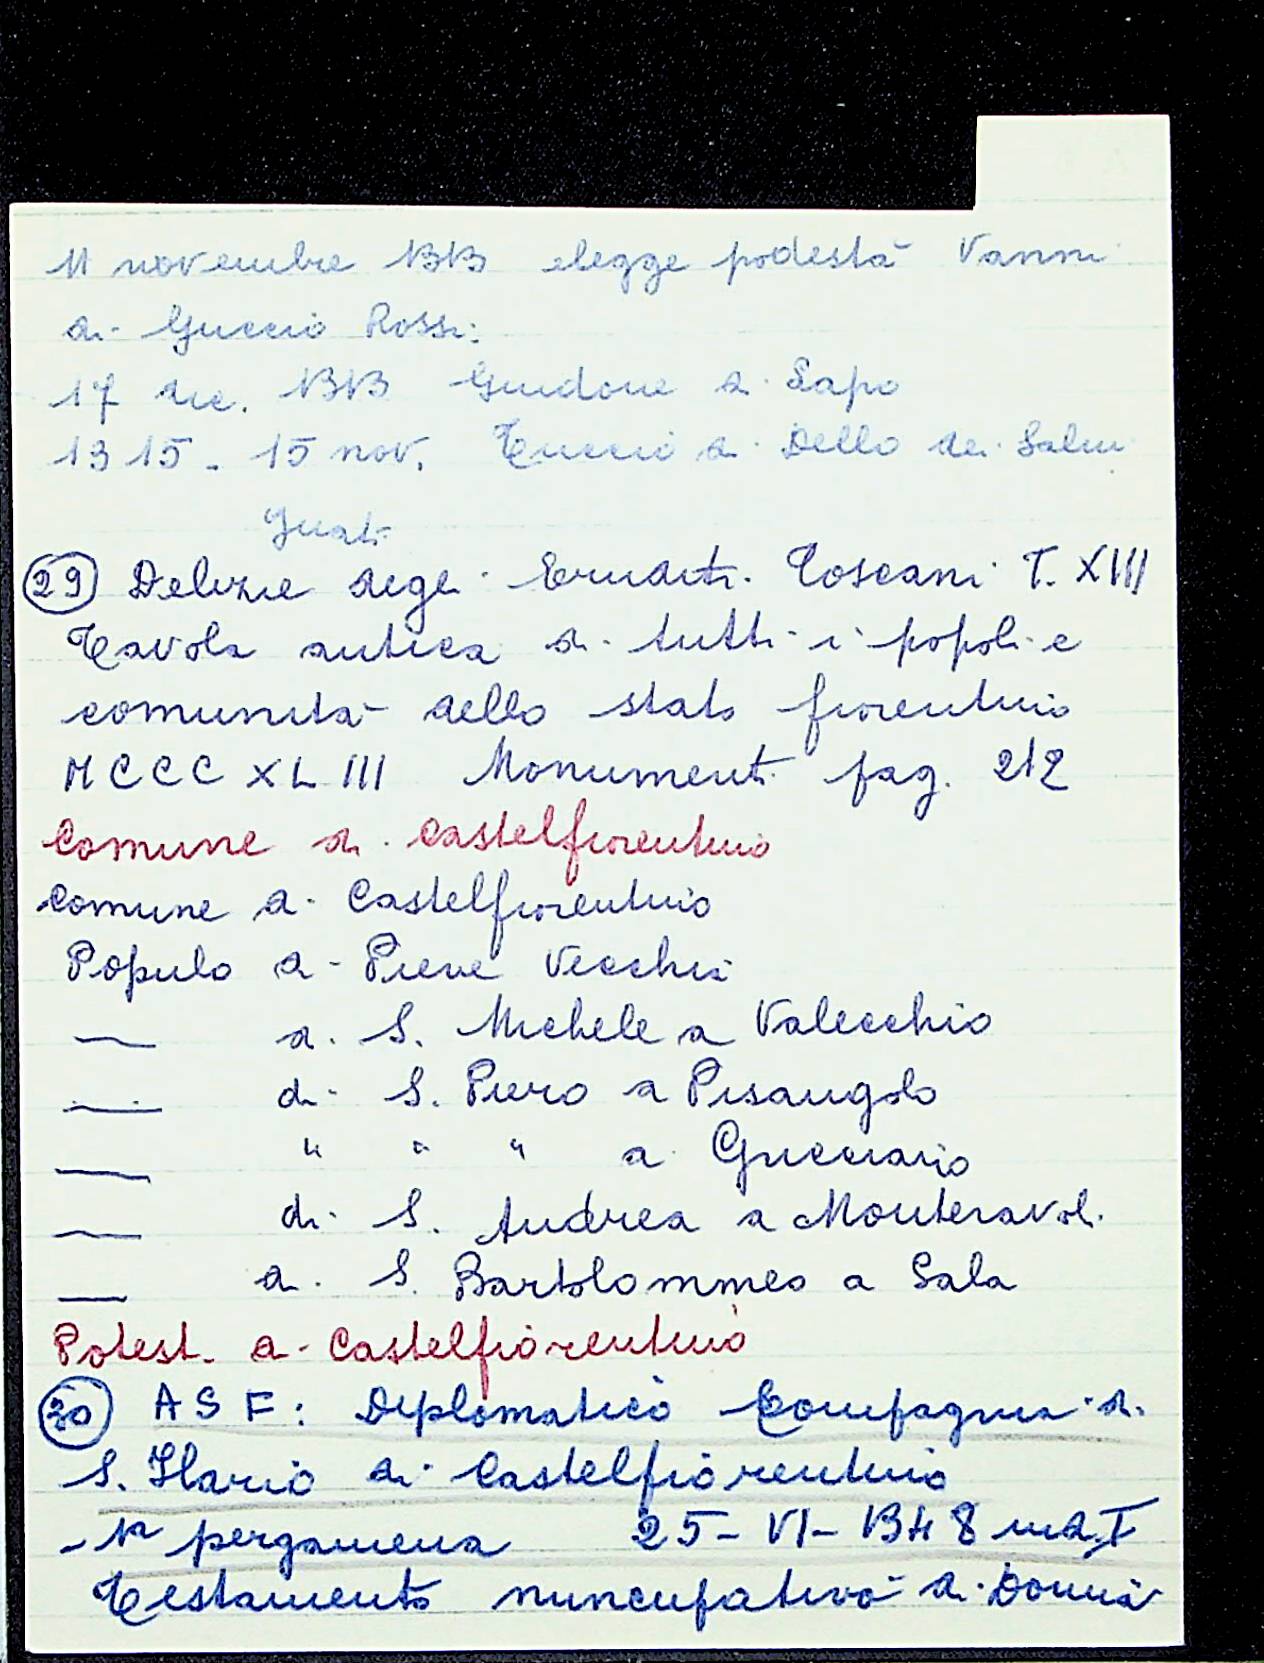 11 novembre 1313 elegge podestà Vanni
di Guccio Rossi:
17 dic. 1313 Guidone di Lapo
1315 - 15 nov. Tuccio di Dello dei Salvi
Guati
29 Delizie degli Eruditi Toscani T. XIII
Tavola antica di tutti i popoli e
comunità dello stato fiorentino
MCCCXLIII Monumenti pag. 212
Comune di Castelfiorentino
Comune di Castelfiorentino
Populo di Pieve Vecchia
— di S. Michele a Valecchio
— di S. Piero a Pisangolo
— " " " a Gricciano
— di S. Andrea a Monteravoli
— di S. Bartolommeo a Sala
Potest. di Castelfiorentino
30 ASF: Diplomatico Compagnia di
S. Ilario di Castelfiorentino
- 1a pergamena 25-VI-1348 ind. I
Testamento nuncupativo di Donna